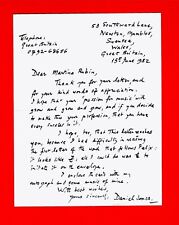 53 Southward Lane,
Telephone: Newton, Mumbles,
Great Britain Swansea,
0792-68656 Wales,
Great Britain.
13th June 1982
Dear Martina Rubin,
Thank you for your letter, and
for your kind words of appreciation.
I hope that your passion for music will
grow and grow and grow, and if you decide
to make this your profession, that you have
every success in it.
I hope, too, that this letter reaches
you, because I had difficulty in reading
the first letter of the word that follows
it looks like I had to
imitate it on the envelope.
I enclose herewith with my
autograph some music of mine.
With best wishes,
Yours sincerely,
Daniel Jones.